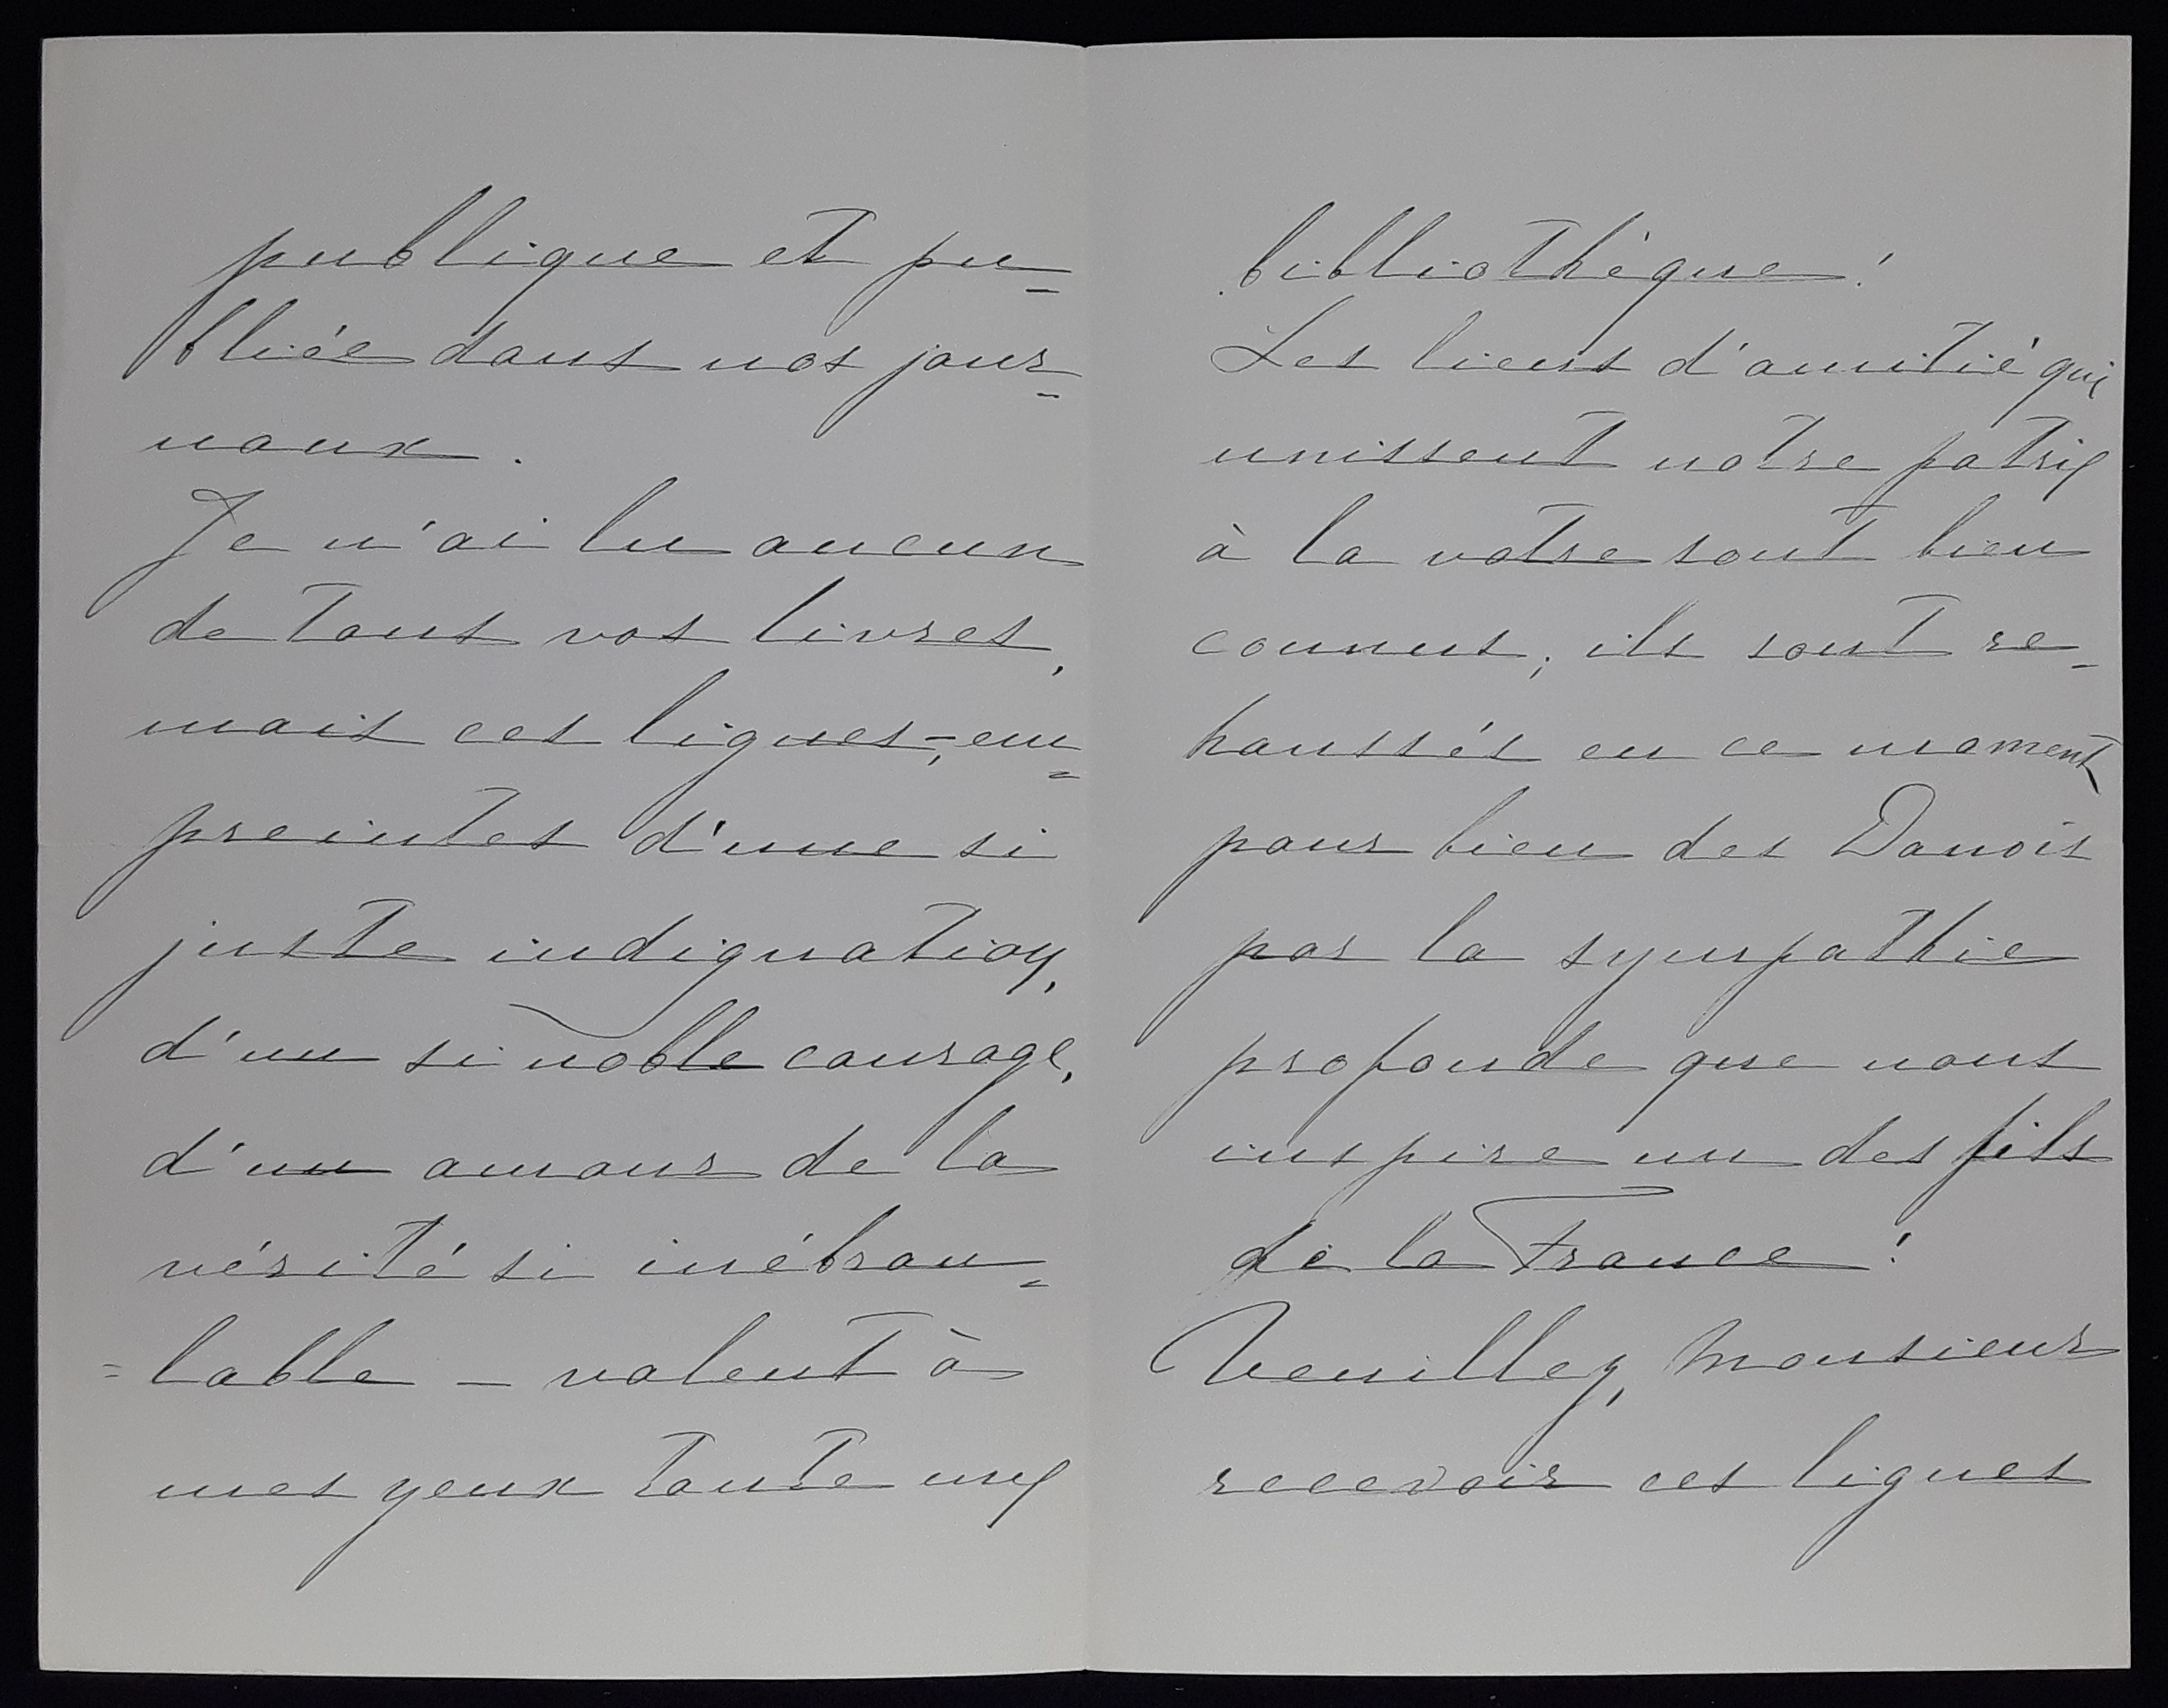 publique et pu-
bliée dans nos jour-
naux.
Je n'ai lu aucun
de tous vos livres,
mais ces lignes, - em-
preintes d'une si
juste indignation,
d'un si noble courage,
d'un amour de la
vérité si inébran-
=lable — valent à
mes yeux toute une
bibliothèque!
Les liens d'amitié qui
unissent notre patrie
à la votre sont bien
connus; ils sont re-
haussés en ce moment
pour bien des Danois
par la sympathie
profonde que nous
inspire un des fils
de la France!
Veuillez, Monsieur
recevoir ces lignes